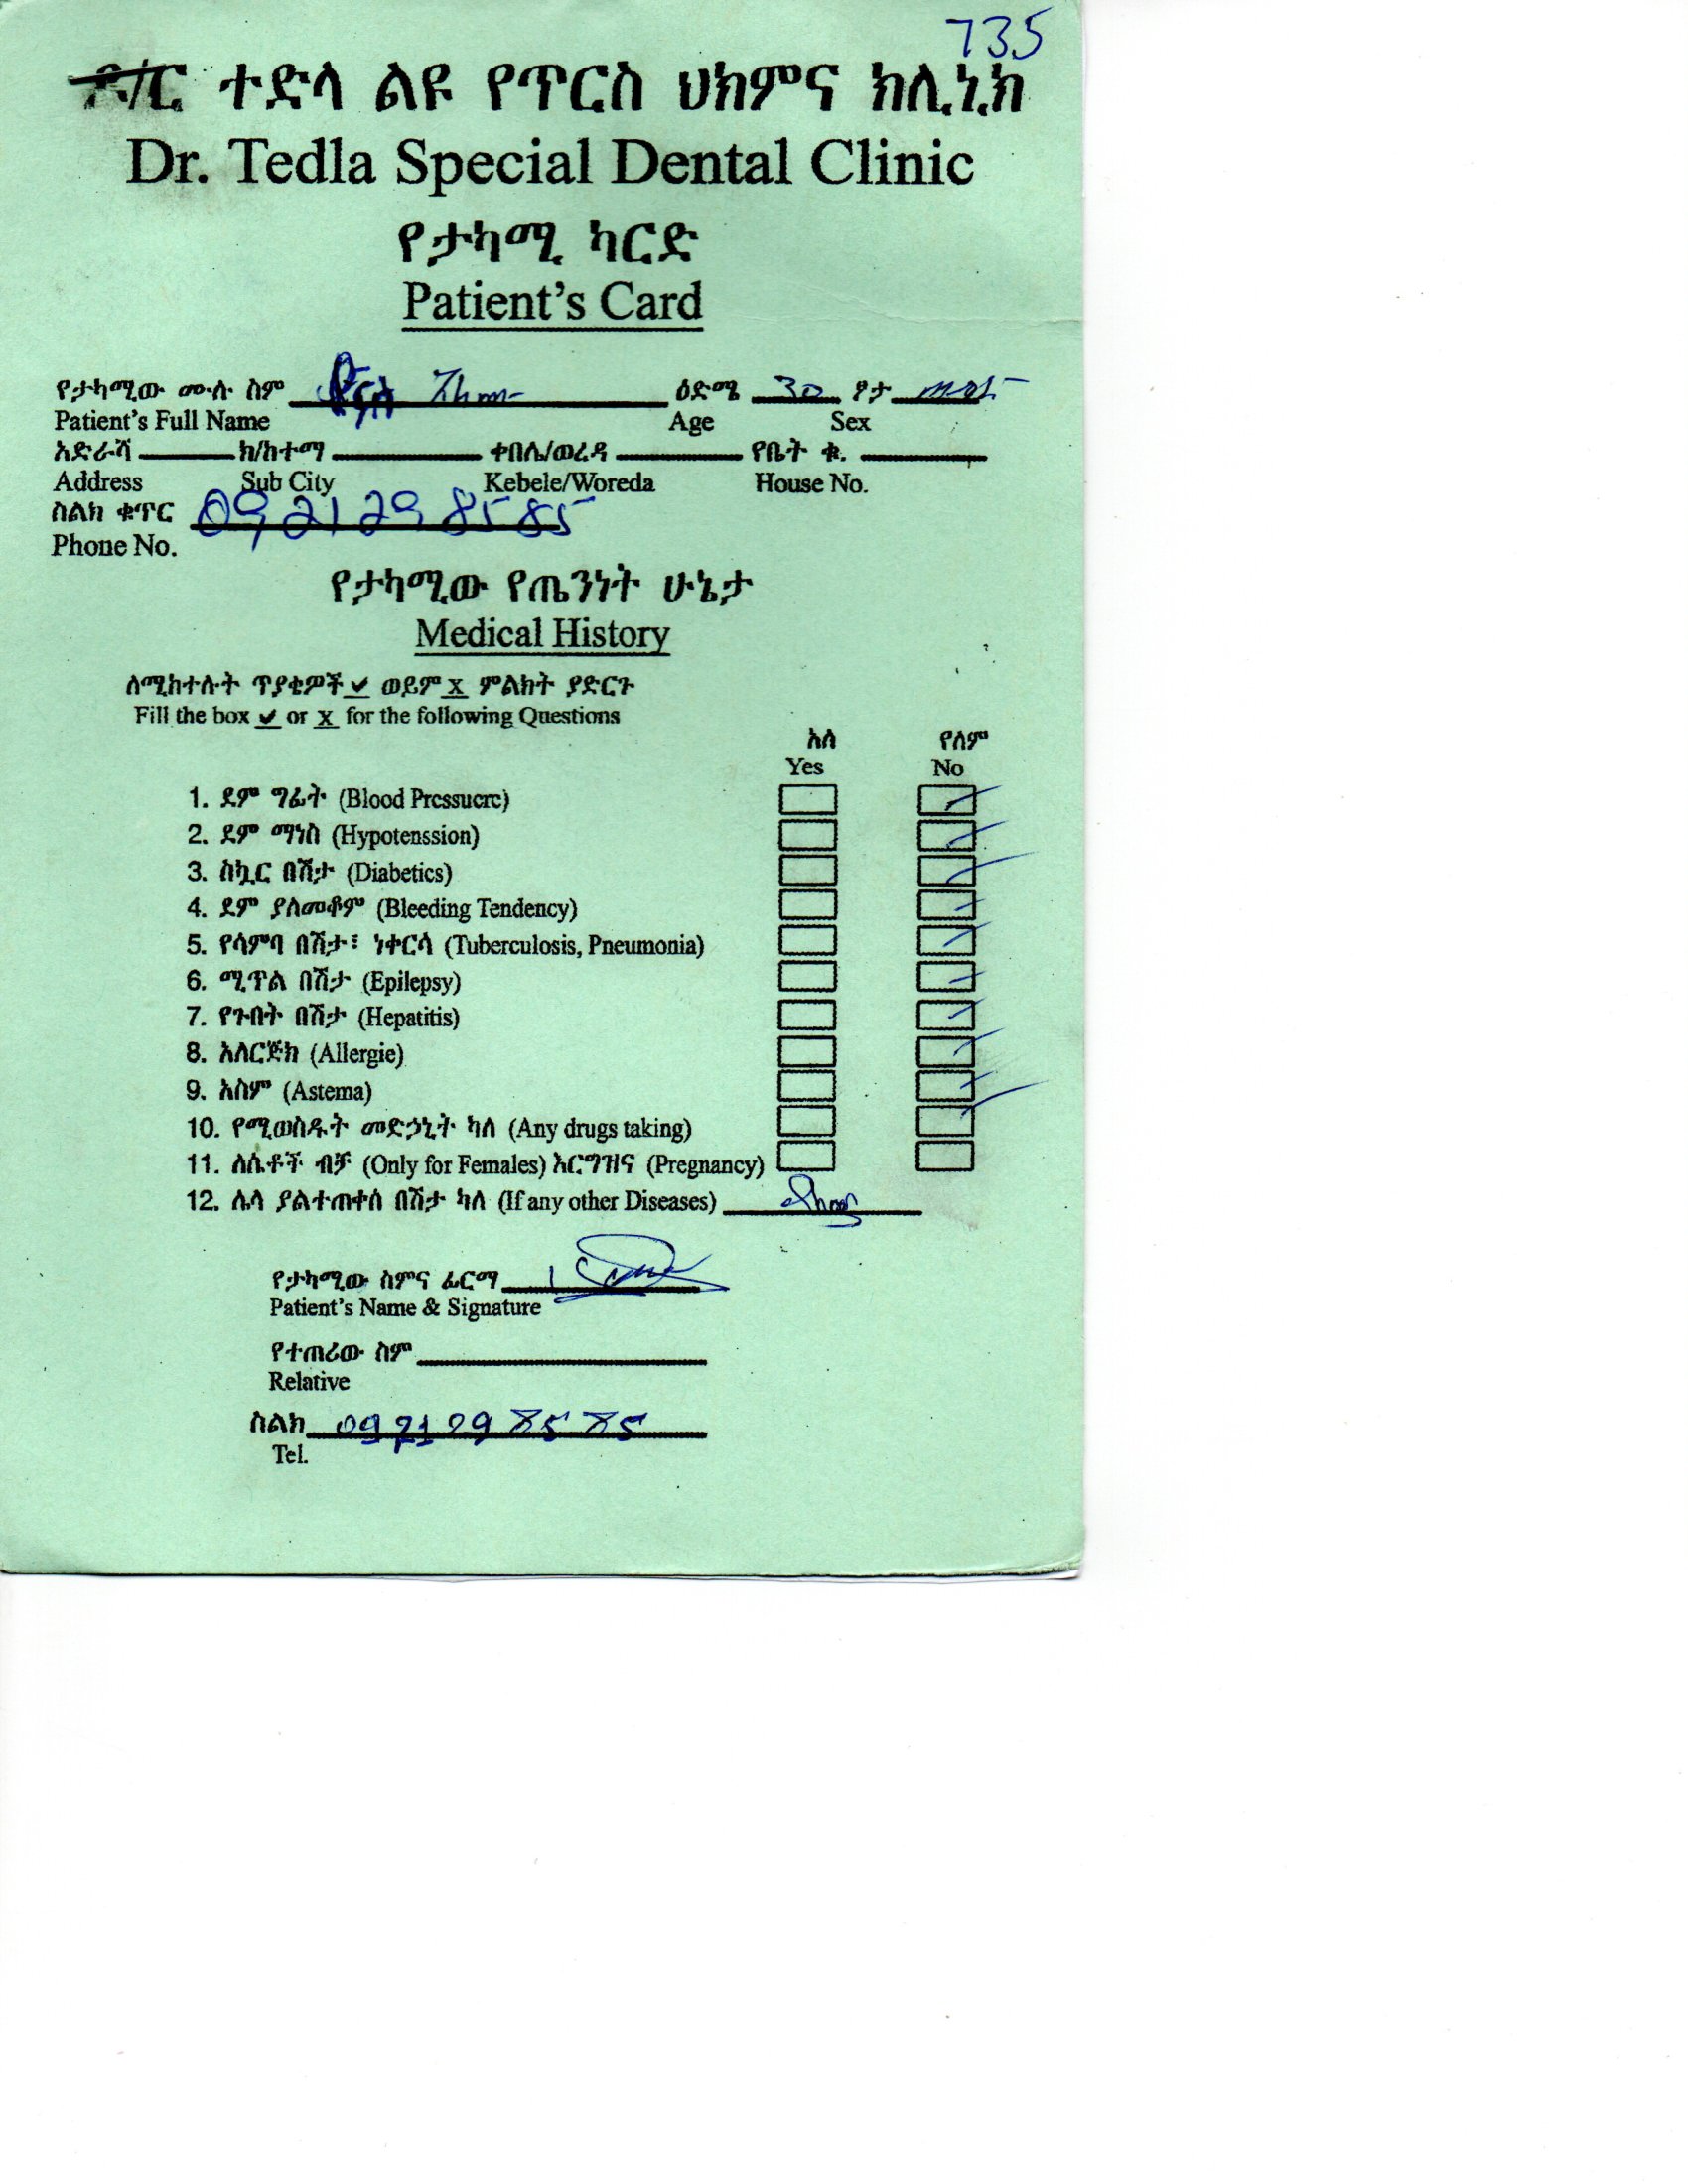 735
ዶ/ር ተድላ ልዩ የጥርስ ህክምና ክሊኒክ
Dr. Tedla Special Dental Clinic
የታካሚ ካርድ
Patient's Card
የታካሚው ሙሉ ስም ዕድሜ 30 ፆታ
Patient's Full Name Age Sex
አድራሻ ክ/ከተማ ቀበሌ/ወረዳ የቤት ቁ.
Address Sub City Kebele/Woreda House No.
ስልክ ቁጥር 0921298585
Phone No.
የታካሚው የጤንነት ሁኔታ
Medical History
ለሚከተሉት ጥያቄዎች ✔ ወይም x ምልክት ያድርጉ
Fill the box ✔ or x for the following Questions
አለ የለም
Yes No
1. ደም ግፊት (Blood Pressuere)
2. ደም ማነስ (Hypotenssion)
3. ስኳር በሽታ (Diabetics)
4. ደም ያለመቆም (Bleeding Tendency)
5. የሳምባ በሽታ፣ ነቀርሳ (Tuberculosis, Pneumonia)
6. ሚጥል በሽታ (Epilepsy)
7. የጉበት በሽታ (Hepatitis)
8. አለርጅክ (Allergie)
9. አስም (Astema)
10. የሚወስዱት መድኃኒት ካለ (Any drugs taking)
11. ለሴቶች ብቻ (Only for Females) እርግዝና (Pregnancy)
12. ሌላ ያልተጠቀሰ በሽታ ካለ (If any other Diseases)
የታካሚው ስምና ፊርማ
Patient's Name & Signature
የተጠሪው ስም
Relative
ስልክ 0921298585
Tel.